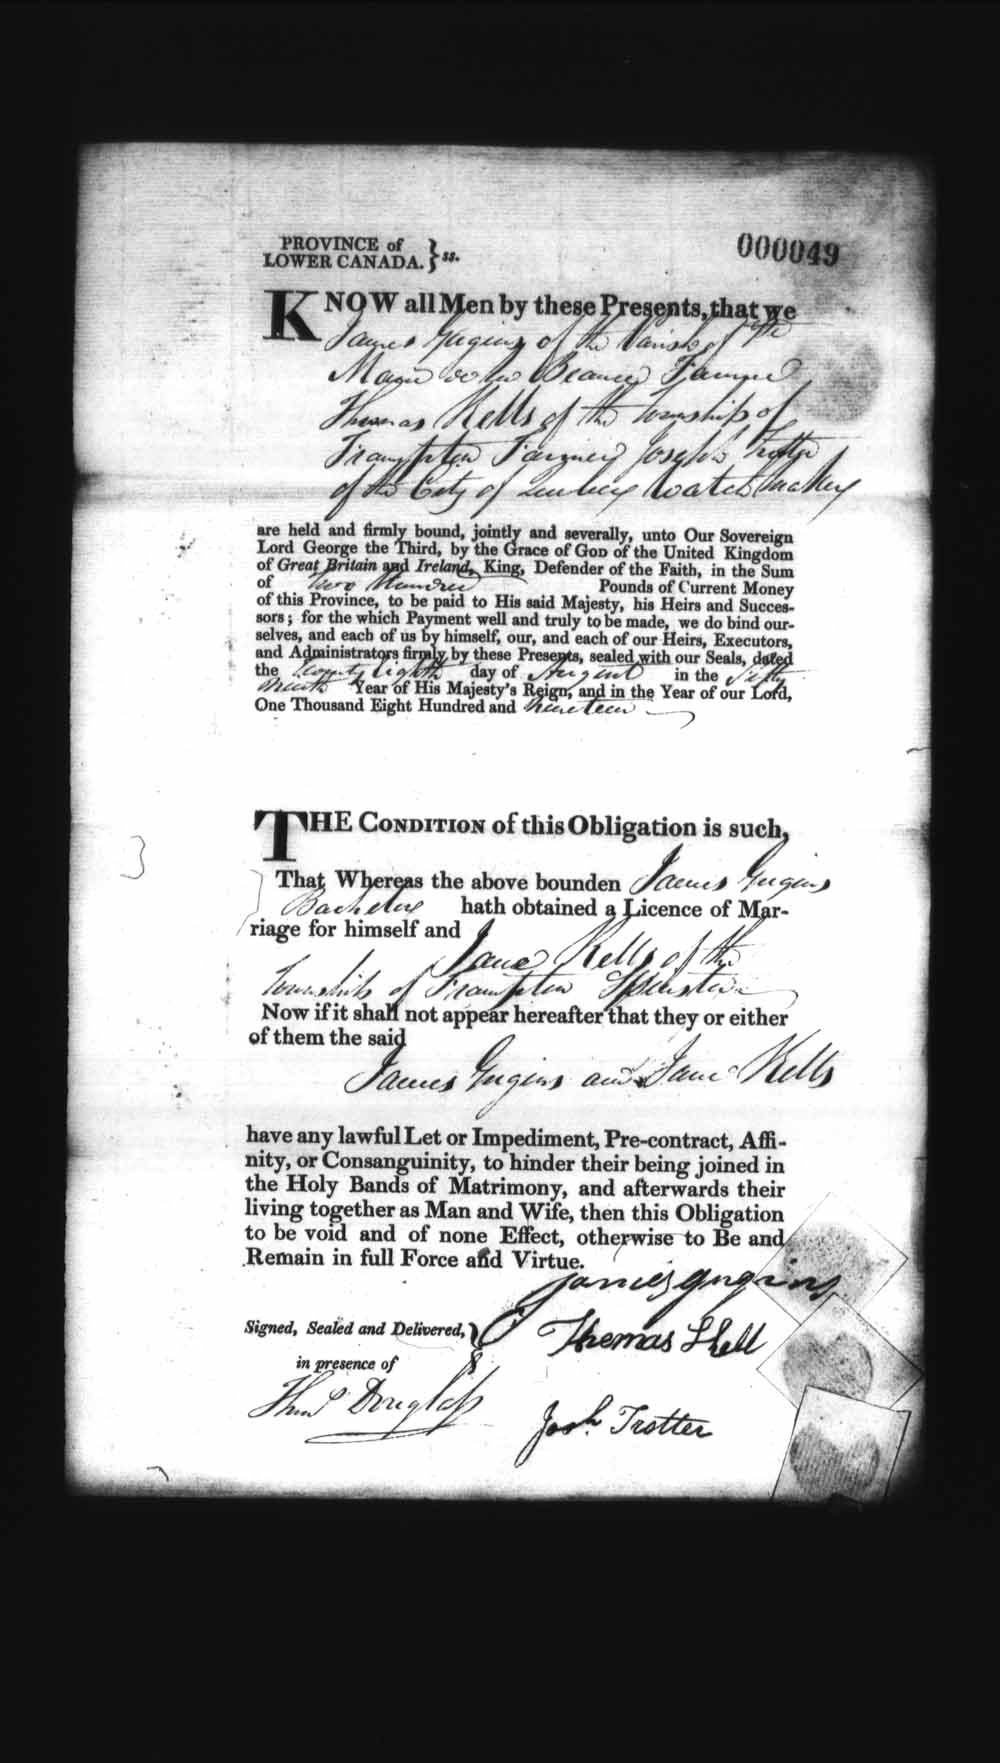 PROVINCE of
LOWER CANADA. } ss.
000049
KNOW all Men by these Presents, that we
James Gugins of the Parish of Ste
Marie de la Beauce Farmer
Thomas Kells of the Township of
Frampton Farmer Joseph Trotter
of the City of Quebec Watch Maker
are held and firmly bound, jointly and severally, unto Our Sovereign
Lord George the Third, by the Grace of GOD of the United Kingdom
of Great Britain and Ireland, King, Defender of the Faith, in the Sum
of Two Hundred Pounds of Current Money
of this Province, to be paid to His said Majesty, his Heirs and Succes-
sors; for the which Payment well and truly to be made, we do bind our-
selves, and each of us by himself, our, and each of our Heirs, Executors,
and Administrators firmly by these Presents, sealed with our Seals, dated
the Twenty Eighth day of August in the Fifty
Ninth Year of His Majesty's Reign, and in the Year of our Lord,
One Thousand Eight Hundred and nineteen
THE CONDITION of this Obligation is such,
That Whereas the above bounden James Gugins
Bachelor hath obtained a Licence of Mar-
riage for himself and
Jane Kells of the
Township of Frampton Spinster
Now if it shall not appear hereafter that they or either
of them the said
James Gugins and Jane Kells
have any lawful Let or Impediment, Pre-contract, Affi-
nity, or Consanguinity, to hinder their being joined in
the Holy Bands of Matrimony, and afterwards their
living together as Man and Wife, then this Obligation
to be void and of none Effect, otherwise to Be and
Remain in full Force and Virtue.
James Gugins
Signed, Sealed and Delivered, }
Thomas Kell
in presence of
Thos Douglass
Josh. Trotter